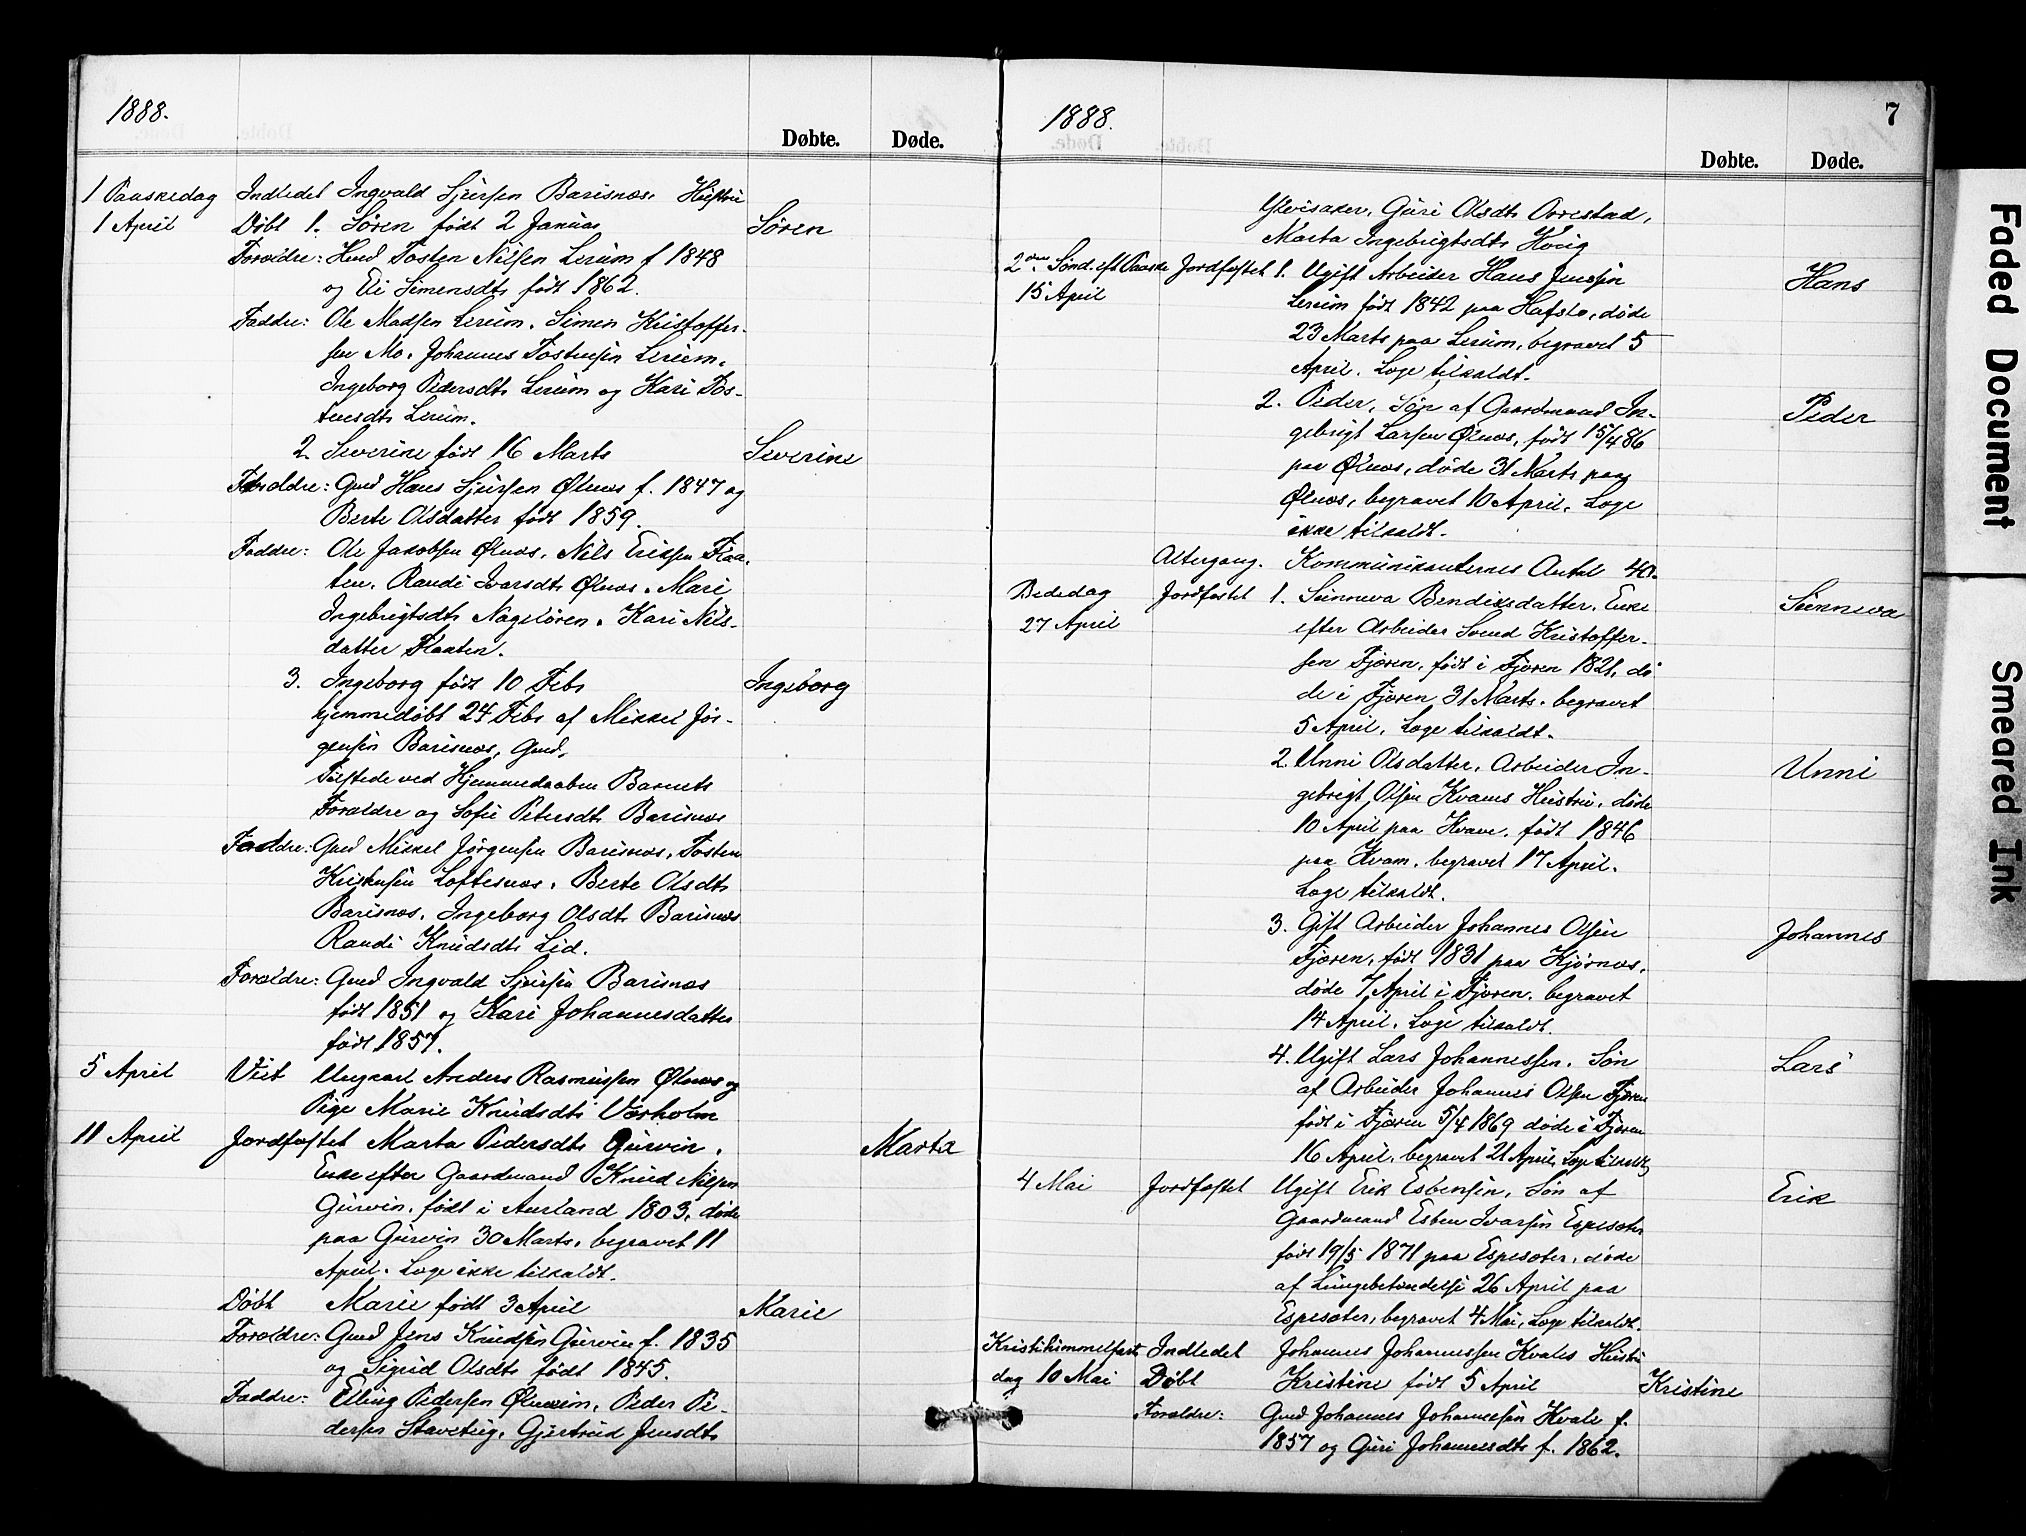 1888.
Døbte. Døde.
1 Paaskedag Indledet Ingvald Sjursen Barsnæs, Hustru
1 April Døbt 1. Søren født 2 Januar Søren
Forældre: Hmd Tosten Nilsen Lerum f 1848
og Eli Simensdtr født 1862.
Faddre: Ole Madsen Lerum. Simen Kristoffer-
sen Mo. Johannes Tostensen Lerum,
Ingeborg Pedersdtr Lerum og Kari Tos-
tensdtr Lerum.
2. Severine født 16 Marts Severine
Forældre: Gmd Hans Sjursen Ølnæs f. 1847 og
Berte Olsdatter født 1859.
Faddre: Ole Jakobsen Ølnæs, Nils Eriksen Flaa-
ten. Randi Ivarsdtr Ølnæs. Mari
Ingebrigtsdtr Nagløren. Kari Nils-
datter Flaaten.
3. Ingeborg født 10 Febr Ingeborg
hjemmedøbt 24 Febr af Mikkel Jør-
gensen Barsnæs, Gmd.
Tilstede ved Hjemmedaaben Barnets
Forældre og Sofie Petersdtr Barsnæs
Faddre: Gmd Mikkel Jørgensen Barsnæs, Tosten
Kristensen Loftesnæs. Berte Olsdtr
Barsnæs. Ingeborg Olsdtr Barsnæs
Randi Knudsdtr Lid.
Forældre: Gmd Ingvald Sjursen Barsnæs
født 1851 og Kari Johannesdatter
født 1857.
5 April Viet Ungkarl Anders Rasmussen Ølnæs og
Pige Marie Knudsdtr Væsholm
11 April Jordfæstet Marta Pedersdtr Gurvin. Marta
Enke efter Gaardmand Knud Nilsen
Gurvin, født i Aurland 1803, døde
paa Gurvin 30 Marts, begravet 11
April. Læge ikke tilkaldt.
Døbt Marie født 3 April Marie
Forældre: Gmd Jens Knudsen Gurvin f. 1835
og Sigrid Olsdtr født 1845.
Faddre: Elling Pedersen Peder Pe-
dersen Staveteig, Gjertrud Jensdtr
1888. 7
Døbte. Døde.
Ylvisaker, Guri Olsdtr Ovrestad,
Marta Ingebrigtsdtr Hovig
2den Sønd. eft Paaske Jordfæstet 1. Ugift Arbeider Hans Jenssen Hans
15 April Lerum født 1842 paa Hafslo, døde
23 Marts paa Lerum, begravet 5
April. Læge tilkaldt.
2. Peder, Søn af Gaardmand In- Peder
gebrigt Larsen Ølnæs, født 15/4 86
paa Ølnæs, døde 31 Marts paa
Ølnæs, begravet 10 April. Læge
ikke tilkaldt.
Altergang. Kommunikanternes Antal 40.
Bededag Jordfæstet 1. Sunneva Bendixsdatter, Enke Sunneva
27 April efter Arbeider Svend Kristoffer-
sen Fjæren, født i Fjæren 1821, dø
de i Fjæren 31 Marts. begravet
5 April, Læge tilkaldt.
2. Unni Olsdatter, Arbeider In- Unni
gebrigt Olsen Kvams Hustru, døde
10 April paa Kvam, født 1846
paa Kvam, begravet 17 April.
Læge tilkaldt.
3. Gift Arbeider Johannes Olsen Johannes
Fjæren, født 1831 paa Kjørnæs,
døde 7 April i Fjæren, begravet
14 April, Læge tilkaldt.
4. Ugift Lars Johannessen, Søn Lars
af Arbeider Johannes Olsen Fjæren
født i Fjæren 5/4 1869 døde i Fjæren
16 April, begravet 21 April, Læge tilkaldt
4 Mai Jordfæstet Ugift Erik Esbensen, Søn af Erik
Gaardmand Esben Ivarsen Espesæter
født 19/5 1871 paa Espesæter, døde
af Lungebetændelse 26 April paa
Espesæter, begravet 4 Mai, Læge tilkaldt.
Kristihimmelfarts Indledet Johannes Johannessen Kvales Hustru
dag 10 Mai Døbt Kristine født 5 April Kristine
Forældre: Gmd Johannes Johannessen Kvale f.
1857 og Guri Johannesdtr f. 1862.
Faded Document
Smeared Ink